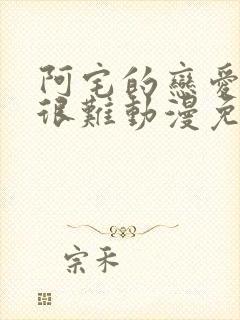 阿宅的戀愛
很難動漫免
宗禾